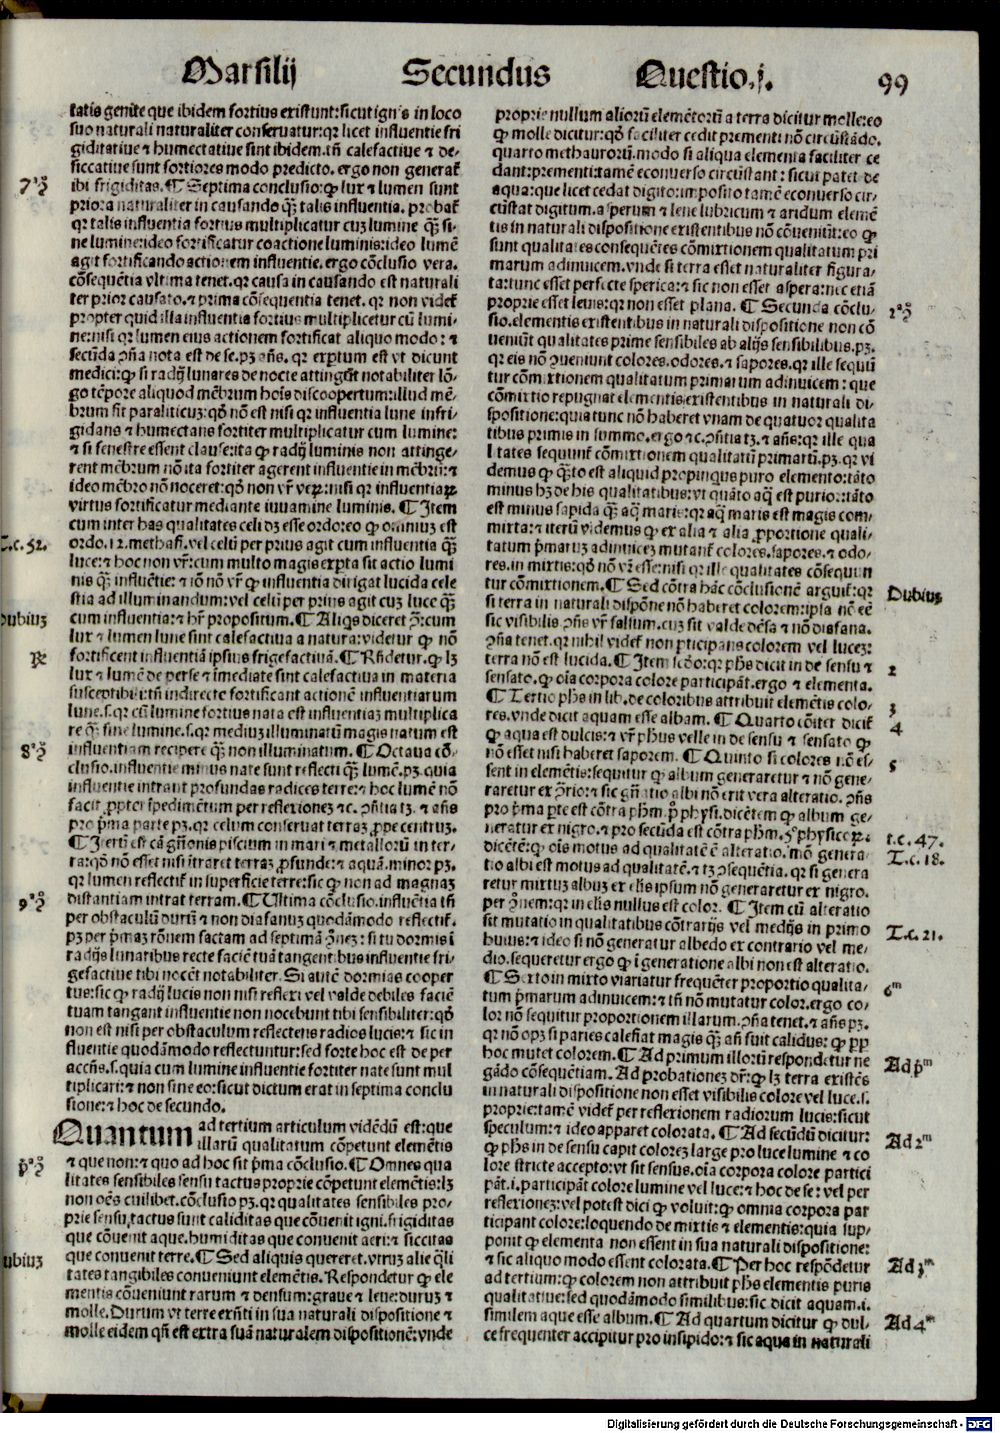 Marsilij Secundus Questio .j. 99
tatis genite que ibidem fortius existunt: sicut ignis in loco
suo naturali naturaliter conseruatur: qr licet influentie fri
giditatiue ⁊ humectatiue sint ibidem. tñ calefactiue ⁊ de-
siccatiue sunt fortiores modo predicto. ergo non generat̃
ibi frigiditas. ¶ Septima conclusio: ꝙ lux ⁊ lumen sunt
priora naturaliter in causando qȝ̃ talis influentia. probat̃
qr talis influentia fortius multiplicatur cuȝ lumine qȝ̃ si-
ne lumine: ideo fortificatur coactione luminis: ideo lumẽ
agit fortificando actionem influentie. ergo cõclusio vera.
cõsequẽtia vltima tenet. qr causa in causando est naturali
ter prior causato. ⁊ prima cõsequentia tenet. qr non videt̃
propter quid illa influentia fortius multiplicetur cũ lumi-
ne: nisi qr lumen eius actionem fortificat aliquo modo: ⁊
secũda ꝯña nota est de se. pȝ añs. qr exptum est vt dicunt
medici: ꝙ si radij lunares de nocte attingũt notabiliter lõ-
go tẽpore aliquod mẽbrum hoĩs discoopertum: illud mẽ-
brum fit paraliticuȝ: qõ nõ est nisi qr influentia lune infri-
gidans ⁊ humectans fortiter multiplicatur cum lumine:
⁊ si fenestre essent clause: ita ꝙ radij luminis non attinge-
rent mẽbrum nõ ita fortiter agerent influentie in mẽbrũ: ⁊
ideo mẽbro nõ noceret: qõ non vr̃ veꝝ: nisi qr influentiaꝝ
virtus fortificatur mediante iuuamine luminis. ¶ Item
cum inter has qualitates celi dȝ esse ordo: eo ꝙ omniuȝ est
ordo. 12. methaß. vel celũ per prius agit cum influentia qȝ̃
luce: ⁊ hoc non vr̃: cum multo magis expta sit actio lumi
nis qȝ̃ influẽtie: ⁊ iõ nõ vr̃ ꝙ influentia dirigat lucida cele
stia ad illuminandum: vel celũ per prius agit cuȝ luce qȝ̃
cum influentia: ⁊ hr̃ propositum. ¶ Aliqs diceret ꝯ̃: cum
lux ⁊ lumen lune sint calefactiua a natura: videtur ꝙ nõ
fortificent influentiã ipsius frigefactiuã. ¶ Rñdetur. ꝙ lȝ
lux ⁊ lumẽ de per se ⁊ ĩmediate sint calefactiua in materia
susceptibili: tñ indirecte fortificant actionẽ influentiarum
lune. s. qr cũ lumine fortius nata est influentiaȝ multiplica
re qȝ̃ sine lumine. s. qr mediuȝ illuminatũ magis natum est
influentiam recipere qȝ̃ non illuminatum. ¶ Octaua cõ-
clusio. influentie minus nate sunt reflecti qȝ̃ lumẽ. pȝ. quia
influentie intrant profundas radices terre: ⁊ hoc lumẽ nõ
facit propter ĩpedimẽtum per reflexionez ⁊c. ꝯñtia tȝ. ⁊ añs
pro p̃ma parte pȝ. qr celum conseruat terraȝ ꝓpe centruȝ.
¶ Itertũ est cã gñonis piscium in mari ⁊ metallorũ in ter-
ra: qõ nõ esset nisi ĩtraret terraȝ ꝓfunde: ⁊ aquã. minor pȝ.
qr lumen reflectit̃ in superficie terre: sic ꝙ non ad magnaȝ
distantiam intrat terram. ¶ Ultima cõclusio. influẽtia tñ
per obstaculũ durũ ⁊ non diafanuȝ quodãmodo reflectit̃.
pȝ per p̃maȝ rõnem factam ad septimã ꝯ̃neȝ: si tu dormis ĩ
radijs lunaribus recte faciẽ tuã tangentibus influentie fri-
gefactiue tibi nocẽt notabiliter. Si autẽ dormias cooper
tus: sic ꝙ radij lucis non nisi reflexi vel valde debiles faciẽ
tuam tangant influentie non nocebunt tibi sensibiliter: qõ
non est nisi per obstaculum reflectens radios lucis: ⁊ sic in
fluentie quodãmodo reflectuntur: sed forte hoc est de per
accñs. s. quia cum lumine influentie fortiter nate sunt mul
tiplicari: ⁊ non sine eo: sicut dictum erat in septima conclu
sione: ⁊ hoc de secundo.
Quantum ad tertium articulum vidẽdũ est: que
illarũ qualitatum cõpetunt elemẽtis
⁊ que non: ⁊ quo ad hoc sit p̃ma cõclusio. ¶ Omnes qua
litates sensibiles sensu tactus proprie cõpetunt elemẽtis: lȝ
non oẽs cuilibet. cõclusio pȝ. qr qualitates sensibiles pro-
prie sensu tactus sunt caliditas que cõuenit igni. frigiditas
que cõuenit aque. humiditas que conuenit aeri: ⁊ siccitas
que conuenit terre. ¶ Sed aliquis quereret. vtruȝ alie q̃li
tates tangibiles conueniunt elemẽtis. Respondetur ꝙ ele
mentis cõueniunt rarum ⁊ densum: graue ⁊ leue: duruȝ ⁊
molle. Durum vt terre exñti in sua naturali dispositione ⁊
molle eidem qñ est extra suã naturalem dispositionẽ: vnde
proprie nullum aliorũ elemẽtorũ a terra dicitur molle: eo
ꝙ molle dicitur: qõ faciliter cedit prementi nõ circũstãdo.
quarto methaurorũ. modo si aliqua elementa faciliter ce
dant: prementi: tamẽ econuerso circũstant: sicut patet de
aqua: que licet cedat digito: imposito tamẽ econuerso cir-
cũstat digitum. asperum ⁊ lene lubricum ⁊ aridum elemẽ
tis in naturali dispositione existentibus nõ cõueniũt: eo ꝙ
sunt qualitates consequẽtes cõmixtionem qualitatum pri
marum adinuicem. vnde si terra esset naturaliter figura-
ta: tunc esset perfecte sperica: ⁊ sic non esset aspera: nec etiã
proprie esset leuis: qr non esset plana. ¶ Secunda cõclu-
sio. elementis existentibus in naturali dispositione non cõ
ueniũt qualitates prime sensibiles ab alijs sensibilibus. pȝ.
qr eis nõ ꝯueniunt colores. odores. ⁊ sapores. qr ille sequũ
tur cõmixtionem qualitatum primarum adinuicem: que
cõmixtio repugnat elementis existentibus in naturali di-
spositione: quia tunc nõ haberet vnam de quatuor qualita
tibus primis in summo. ergo ⁊c. ꝯñtia tȝ. ⁊ añs: qr ille qua
litates sequũt̃ cõmixtionem qualitatũ primarũ. pȝ. qr vi
demus ꝙ qȝ̃to est aliquid propinqus puro elemento: tãto
minus hȝ de his qualitatibus: vt quãto aq̃ est purior: tãto
est minus sapida qȝ̃ aq̃ maris: qr aq̃ maris est magis com
mixta: ⁊ iterũ videmus ꝙ ex alia ⁊ alia ꝓportione quali-
tatum p̃maruȝ adinuiceȝ mutant̃ colores. sapores. ⁊ odo-
res. in mixtis: qõ nõ vr̃ esse: nisi qr ille qualitates cõsequun
tur cõmixtionem. ¶ Sed cõtra hãc cõclusionẽ arguit̃: qr
si terra in naturali dispõne nõ haberet colorem: ipsa nõ eẽ
sic visibilis. ꝯñs vr̃ falsum. cuȝ sit valde dẽsa ⁊ nõ diafana.
ꝯña tenet. qr nihil videt̃ non pticipans colorem vel luceȝ:
terra nõ est lucida. ¶ Item scđo: qr ph̃s dicit in de sensu ⁊
sensato. ꝙ oĩa corpora colore participãt. ergo ⁊ elementa.
¶ Tertio ph̃s in lib. de coloribus attribuit elemẽtis colo-
res. vnde dicit aquam esse albam. ¶ Quarto cõiter dicit̃
ꝙ aqua est dulcis: ⁊ vr̃ phus velle in de sensu ⁊ sensato ꝙ
nõ esset nisi haberet saporem. ¶ Quinto si colores nõ es-
sent in elemẽtis: sequitur ꝙ album generaretur ⁊ nõ gene-
raretur ex ꝯ̃rio: ⁊ sic gñatio albi nõ erit vera alteratio. ꝯñs
pro p̃ma pte est cõtra ph̃m. p̃ physi. dicẽtem ꝙ album ge-
neratur ex nigro. ⁊ pro secũda est cõtra ph̃m. 5º physicoꝝ:
dicẽtẽ: ꝙ oĩs motus ad qualitatẽ ẽ alteratio. mõ genera-
tio albi est motus ad qualitatẽ. ⁊ tȝ ꝯsequẽtia. qr si genera
retur mixtuȝ albuȝ ex elis ipsum nõ generaretur ex nigro.
per ꝯ̃nem: qr in elis nullus est color. ¶ Item cũ alteratio
sit mutatio in qualitatibus cõtrarijs vel medijs in primo
huius: ⁊ ideo si nõ generatur albedo ex contrario vel me-
dio. sequeretur ergo ꝙ ĩ generatione albi non est alteratio.
¶ Sexto in mixto viariatur frequẽter proportio qualita-
tum p̃marum adinuicem: ⁊ tñ nõ mutatur color. ergo co-
lor nõ sequitur proportionem illarum. ꝯña tenet. ⁊ añs pȝ.
qr nõ opȝ si paries calefiat magis qȝ̃ añ fuit calidus: ꝙ ꝓp
hoc mutet colorem. ¶ Ad primum illorũ respondetur ne
gãdo cõsequẽtiam. Ad probationeȝ dr̃: ꝙ lȝ terra existẽs
in naturali dispositione non esset visibilis colore vel luce. s.
proprie: tamẽ videt̃ per reflexionem radiorum lucis: sicut
speculum: ⁊ ideo apparet colorata. ¶ Ad secũdũ dicitur:
ꝙ ph̃s in de sensu capit coloreȝ large pro luce lumine ⁊ co
lore stricte accepto: vt sit sensus. oĩa corpora colore partici
pãt. i. participãt colore lumine vel luce: ⁊ hoc de se: vel per
reflexioneȝ: vel potest dici ꝙ voluit: ꝙ omnia corpora par
ticipant colore: loquendo de mixtis ⁊ elementis: quia sup-
ponit ꝙ elementa non essent in sua naturali dispositione:
⁊ sic aliquo modo essent colorata. ¶ Per hoc respõdetur
ad tertium: ꝙ colorem non attribuit ph̃s elementis puris
qualitatiue: sed quodãmodo similibus: sic dicit aquam. i.
similem aque esse album. ¶ Ad quartum dicitur ꝙ dul-
ce frequenter accipitur pro insipido: ⁊ sic aqua in naturali
7ª ꝯ̃
T.c. 52.
Dubiuȝ
R̃
8ª ꝯ̃
9ª ꝯ̃
p̃ª ꝯ̃
ubiuȝ
2ª ꝯ̃
Dubiuȝ
2
3
4
5
t.c. 47.
T.c. 18.
T.c. 21.
6m
Ad p̃m
Ad 2m
Ad 3m
Ad 4m
Digitalisierung gefördert durch die Deutsche Forschungsgemeinschaft - DFG